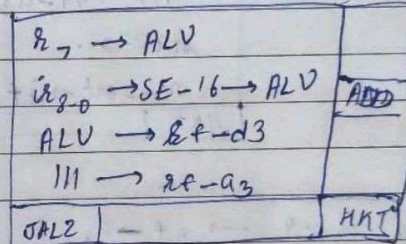 r₇ → ALU
ir₈₋₀ → SE-16 → ALU
ADD
ALU → rf-d3
111 → rf-a₃
JAL2